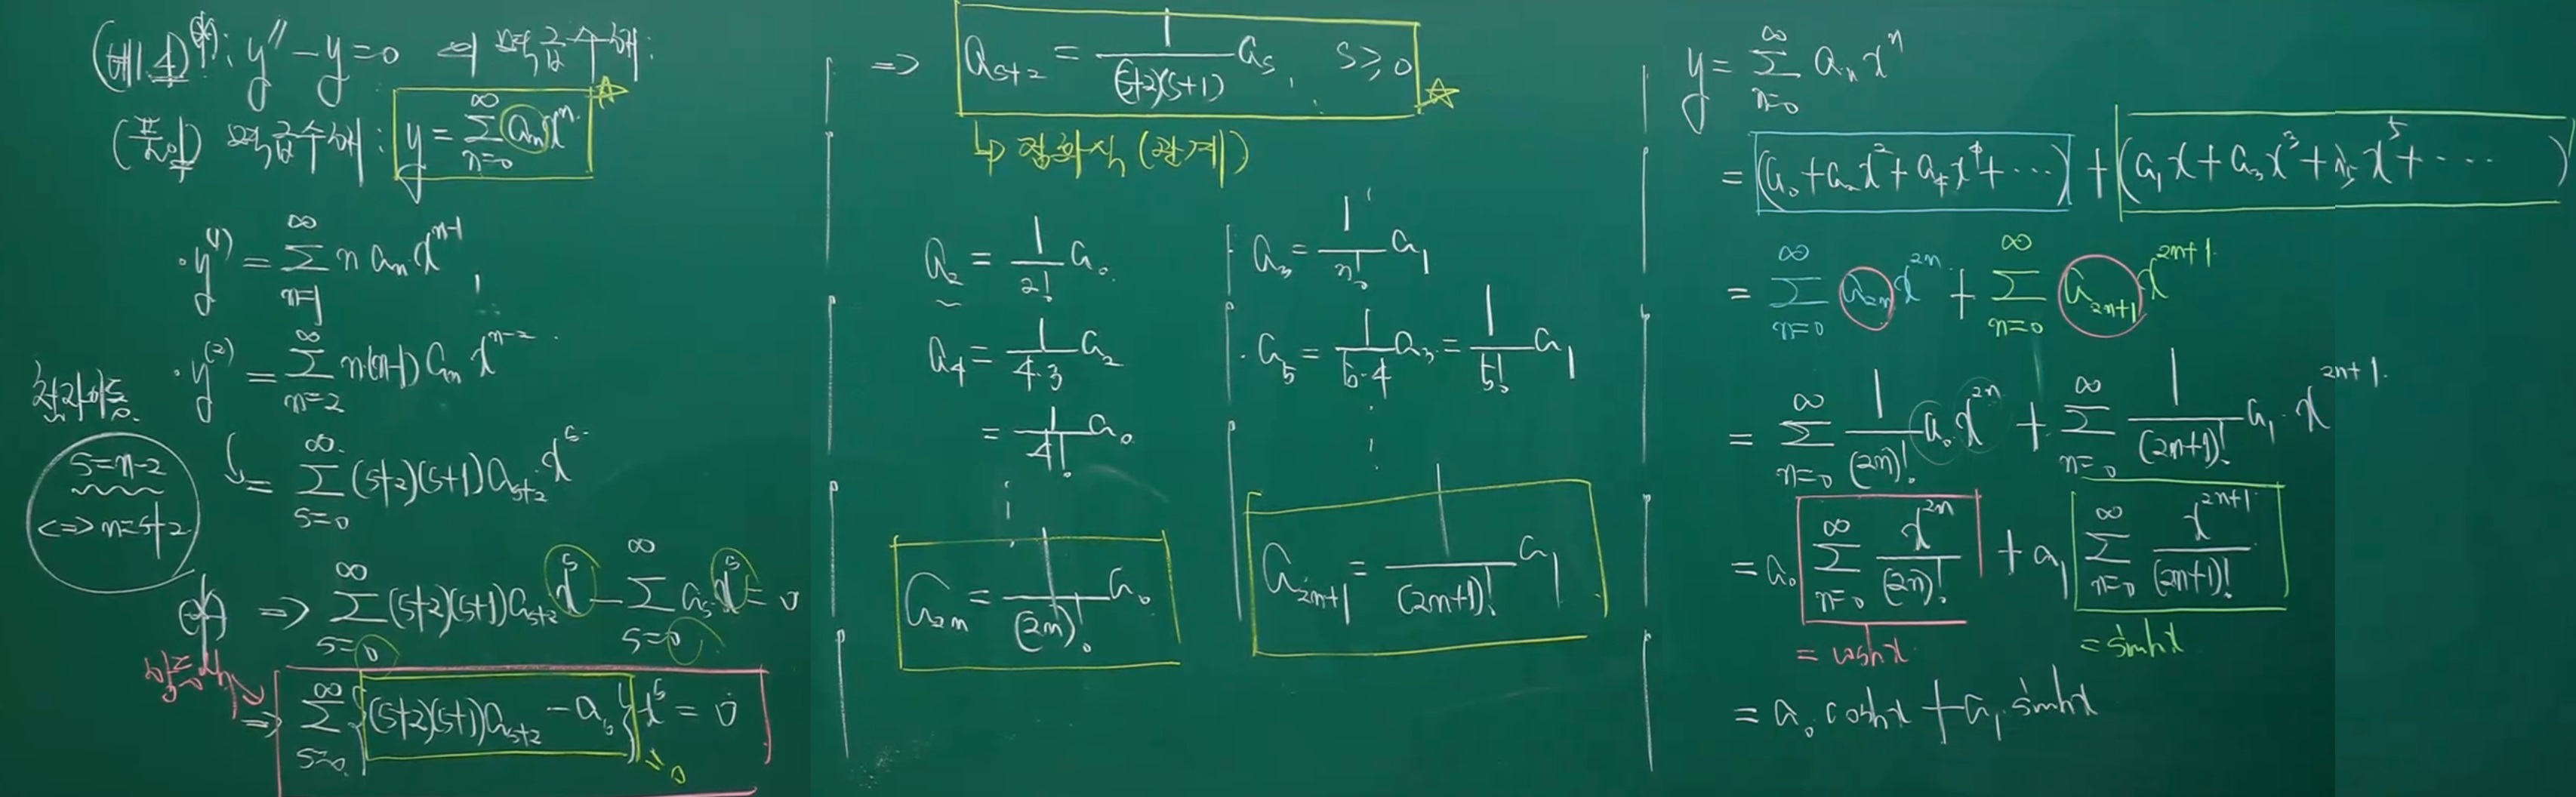 (예1.4) (*): y'' - y = 0 의 멱급수해:
(풀이) 멱급수해: y = ∑_{n=0}^{∞} a_n x^n ☆
· y^{(1)} = ∑_{n=1}^{∞} n a_n x^{n-1},
· y^{(2)} = ∑_{n=2}^{∞} n(n-1) a_n x^{n-2}
s = n-2
<=> n = s+2
↳ = ∑_{s=0}^{∞} (s+2)(s+1) a_{s+2} x^s
(*) => ∑_{s=0}^{∞} (s+2)(s+1) a_{s+2} x^s - ∑_{s=0}^{∞} a_s x^s = 0
항등식
=> ∑_{s=0}^{∞} {(s+2)(s+1) a_{s+2} - a_s} x^s = 0
= 0
=> a_{s+2} = \frac{1}{(s+2)(s+1)} a_s, s ≥ 0 ☆
↳ 점화식 (관계)
a_2 = \frac{1}{2!} a_0
a_4 = \frac{1}{4·3} a_2
= \frac{1}{4!} a_0
⋮
a_{2n} = \frac{1}{(2n)!} a_0
a_3 = \frac{1}{3!} a_1
· a_5 = \frac{1}{5·4} a_3 = \frac{1}{5!} a_1
⋮
a_{2n+1} = \frac{1}{(2n+1)!} a_1
y = ∑_{n=0}^{∞} a_n x^n
= (a_0 + a_2 x^2 + a_4 x^4 + ⋯) + (a_1 x + a_3 x^3 + a_5 x^5 + ⋯)
= ∑_{n=0}^{∞} a_{2n} x^{2n} + ∑_{n=0}^{∞} a_{2n+1} x^{2n+1}
= ∑_{n=0}^{∞} \frac{1}{(2n)!} a_0 x^{2n} + ∑_{n=0}^{∞} \frac{1}{(2n+1)!} a_1 · x^{2n+1}
= a_0 ∑_{n=0}^{∞} \frac{x^{2n}}{(2n)!} + a_1 ∑_{n=0}^{∞} \frac{x^{2n+1}}{(2n+1)!}
= cosh x = sinh x
= a_0 cosh x + a_1 sinh x